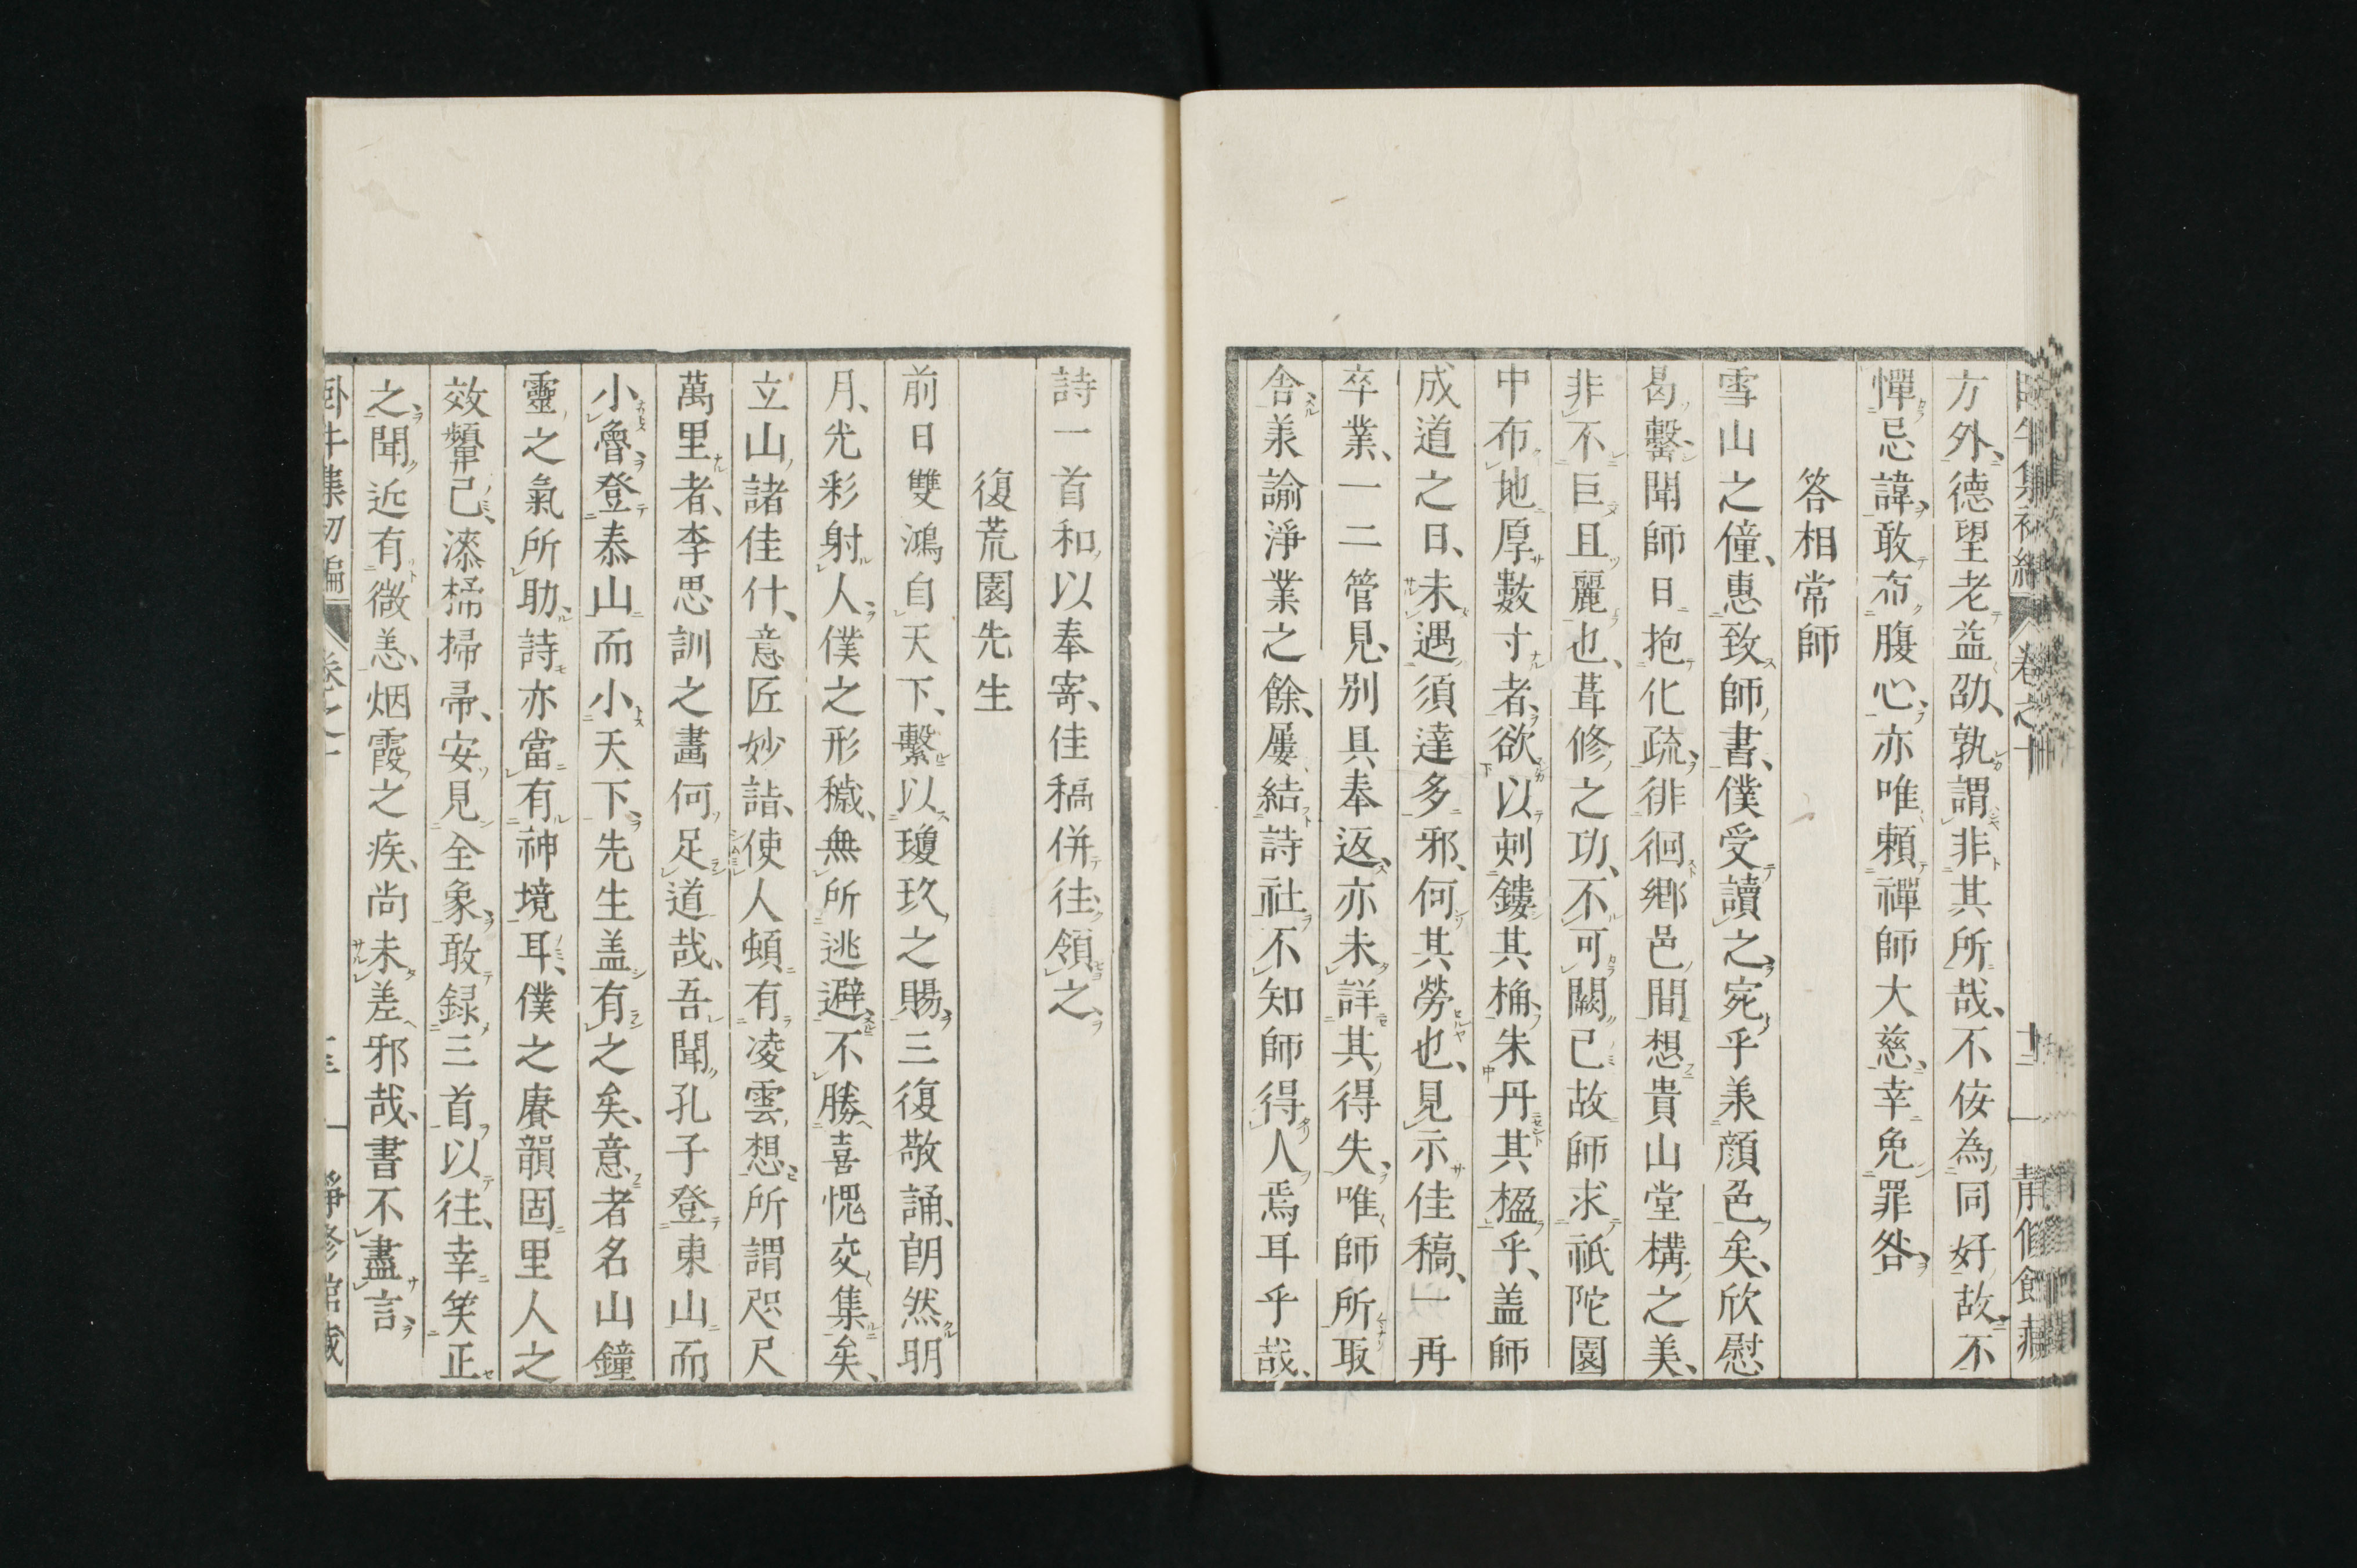 方外、德望老益劭、孰謂非其所哉、不佞為同好故、不
憚忌諱、敢布腹心、亦唯賴禪師大慈、幸免罪咎、
答相常師
雪山之僮、惠致師書、僕受讀之、宛乎羕顔色矣、欣慰
曷罄、聞師日抱化疏、徘徊鄉邑間、想貴山堂構之美、
非不巨且麗也、葺修之功、不可闕已、故師求祇陀園
中布地厚數寸者、欲以剞鏤其桷、朱丹其楹乎、盖師
成道之日、未遇須達多邪、何其勞也、見示佳稿、一再
卒業、一二管見、別具奉返、亦未詳其得失、唯師所取
舍、羕諭淨業之餘、屢結詩社、不知師得人焉耳乎哉、
詩一首和以奉寄、佳稿併往、領之、
復荒園先生
前日雙鴻自天下、繫以瓊玖之賜、三復敬誦、朗然明
月、光彩射人、僕之形穢、無所逃避、不勝喜愧交集矣、
立山諸佳什、意匠妙詣、使人頓有凌雲想、所謂咫尺
萬里者、李思訓之畫何足道哉、吾聞孔子登東山而
小魯、登泰山而小天下、先生盖有之矣、意者名山鐘
靈之氣所助、詩亦當有神境耳、僕之賡韻、固里人之
效顰已、漆桶掃帚、安見全象、敢録三首以往、幸笑正
之、聞近有微恙、烟霞之疾、尚未差邪哉、書不盡言、